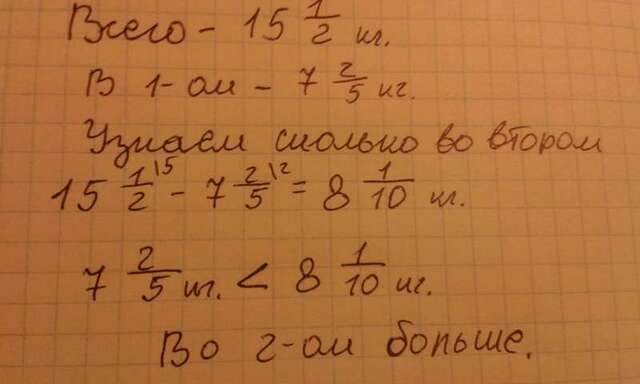 Всего - 15 1/2 кг.
В 1-ом - 7 2/5 кг.
Узнаем сколько во втором
15 1/2 \5 - 7 2/5 \2 = 8 1/10 кг.
7 2/5 кг. < 8 1/10 кг.
Во 2-ом больше.